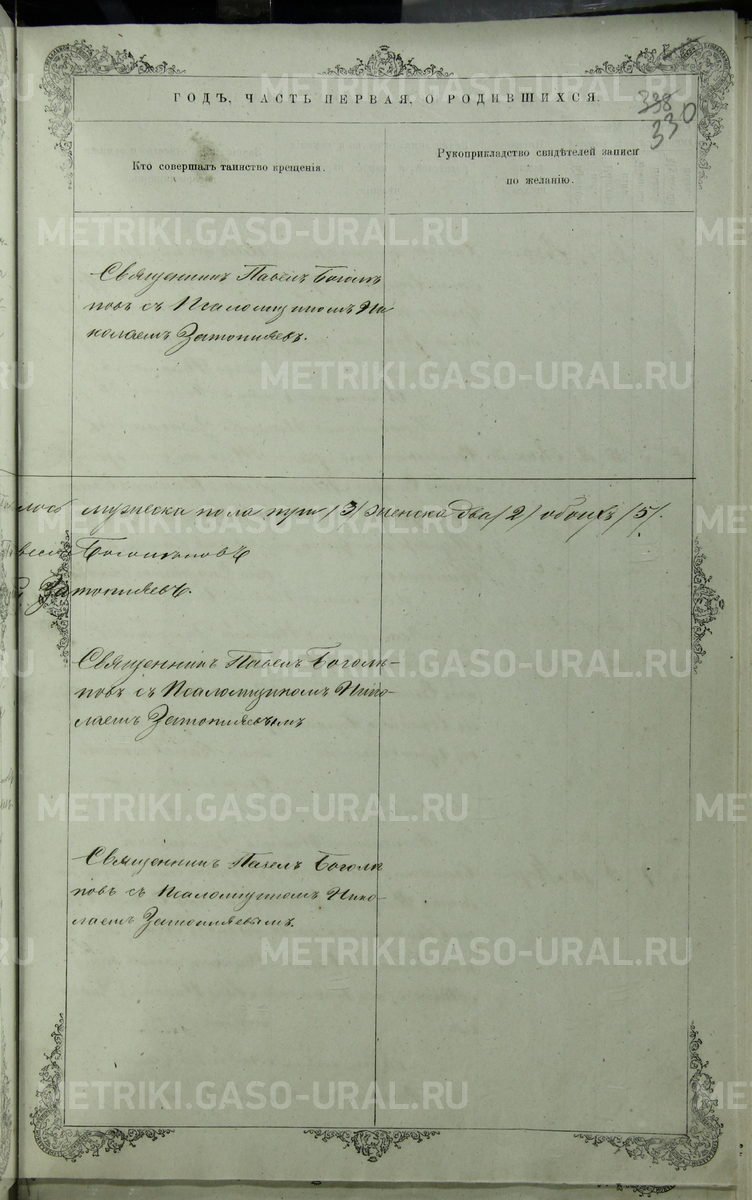 ГОДЪ, ЧАСТЬ ПЕРВАЯ, О РОДИВШИХСЯ.
338
330
Кто совершалъ таинство крещенія.
Рукоприкладство свидѣтелей записи
по желанію.
Священникъ Павелъ Боголѣ
повъ съ Псаломщикомъ Ни
колаемъ Затопляевъ.
мужеска пола три /3/ женска два /2/ обоихъ /5/.
Боголѣповъ
Затопляевъ.
Священникъ Павелъ Боголѣ-
повъ съ Псаломщикомъ Нико-
лаемъ Затопляевымъ
Священникъ Павелъ Боголѣ
повъ съ Псаломщикомъ Нико-
лаемъ Затопляевымъ.
METRIKI.GASO-URAL.RU